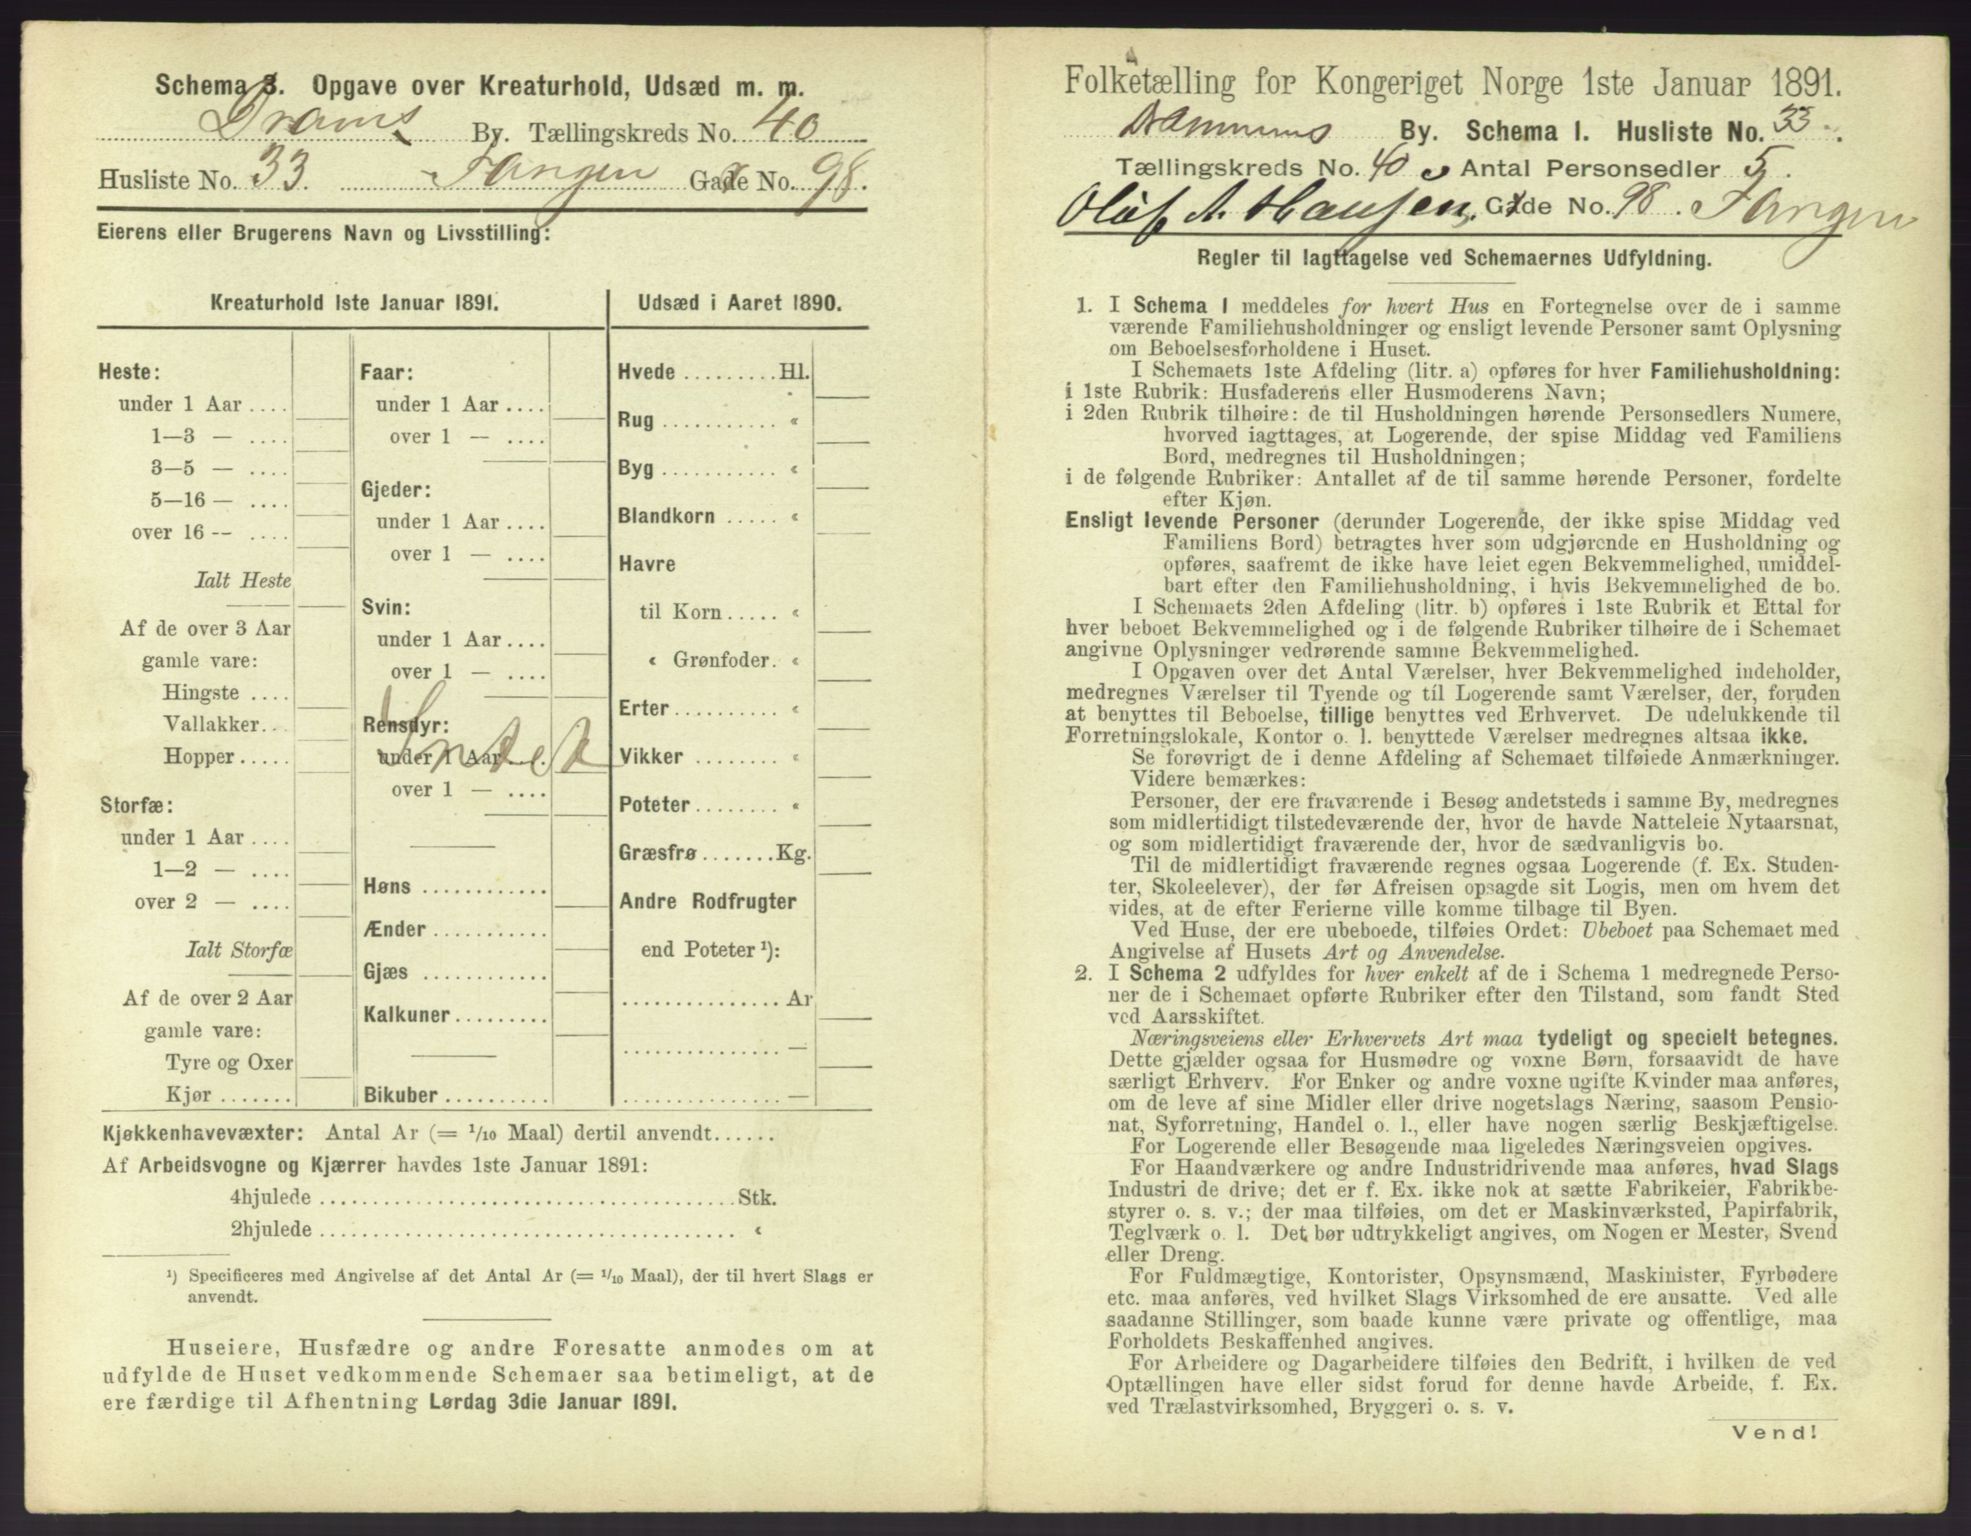 Schema 3. Opgave over Kreaturhold, Udsæd m. m.
Drams By. Tællingskreds No. 40
Husliste No. 33. Tangen Gade No. 98.
Eierens eller Brugerens Navn og Livsstilling:
Kreaturhold 1ste Januar 1891.
Heste:
under 1 Aar ....
1—3 — ....
3—5 — ....
5—16 — ....
over 16 -- ....
Ialt Heste
Af de over 3 Aar
gamle vare:
Hingste ....
Vallakker...
Hopper.....
Storfæ:
under 1 Aar ....
1—2 — ....
over 2 — ....
Ialt Storfæ
Af de over 2 Aar
gamle vare:
Tyre og Oxer
Kjør .......
Faar:
under 1 Aar ....
over 1 — ....
Gjeder:
under 1 Aar ....
over 1 — ....
Svin:
under 1 Aar ....
over 1 — ....
Rensdyr:
Intet
under 1 Aar ....
over 1 — ....
Høns ............
Ænder ...........
Gjæs ............
Kalkuner.........
Bikuber ..........
Udsæd i Aaret 1890.
Hvede .........Hl.
Rug ........... «
Byg ........... «
Blandkorn ..... «
Havre
til Korn ..... «
« Grønfoder. «
Erter .......... «
Vikker ........ «
Poteter ........ «
Græsfrø .......Kg.
Andre Rodfrugter
end Poteter ¹):
...............Ar
............... —
............... —
Kjøkkenhavevæxter: Antal Ar (= 1/10 Maal) dertil anvendt......
Af Arbeidsvogne og Kjærrer havdes 1ste Januar 1891:
4hjulede ......................................Stk.
2hjulede ...................................... «
¹) Specificeres med Angivelse af det Antal Ar (= 1/10 Maal), der til hvert Slags er
anvendt.
Huseiere, Husfædre og andre Foresatte anmodes om at
udfylde de Huset vedkommende Schemaer saa betimeligt, at de
ere færdige til Afhentning Lørdag 3die Januar 1891.
Folketælling for Kongeriget Norge 1ste Januar 1891.
Drammens By. Schema I. Husliste No. 33.
Tællingskreds No. 40 Antal Personsedler 5.
Oluf A. Hansen, Gade No. 98. Tangen
Regler til Iagttagelse ved Schemaernes Udfyldning.
1. I Schema 1 meddeles for hvert Hus en Fortegnelse over de i samme
værende Familiehusholdninger og ensligt levende Personer samt Oplysning
om Beboelsesforholdene i Huset.
I Schemaets 1ste Afdeling (litr. a) opføres for hver Familiehusholdning:
i 1ste Rubrik: Husfaderens eller Husmoderens Navn;
i 2den Rubrik tilhøire: de til Husholdningen hørende Personsedlers Numere,
hvorved iagttages, at Logerende, der spise Middag ved Familiens
Bord, medregnes til Husholdningen;
i de følgende Rubriker: Antallet af de til samme hørende Personer, fordelte
efter Kjøn.
Ensligt levende Personer (derunder Logerende, der ikke spise Middag ved
Familiens Bord) betragtes hver som udgjørende en Husholdning og
opføres, saafremt de ikke have leiet egen Bekvemmelighed, umiddel-
bart efter den Familiehusholdning, i hvis Bekvemmelighed de bo.
I Schemaets 2den Afdeling (litr. b) opføres i 1ste Rubrik et Ettal for
hver beboet Bekvemmelighed og i de følgende Rubriker tilhøire de i Schemaet
angivne Oplysninger vedrørende samme Bekvemmelighed.
I Opgaven over det Antal Værelser, hver Bekvemmelighed indeholder,
medregnes Værelser til Tyende og til Logerende samt Værelser, der, foruden
at benyttes til Beboelse, tillige benyttes ved Erhvervet. De udelukkende til
Forretningslokale, Kontor o. l. benyttede Værelser medregnes altsaa ikke.
Se forøvrigt de i denne Afdeling af Schemaet tilføiede Anmærkninger.
Videre bemærkes:
Personer, der ere fraværende i Besøg andetsteds i samme By, medregnes
som midlertidigt tilstedeværende der, hvor de havde Natteleie Nytaarsnat,
og som midlertidigt fraværende der, hvor de sædvanligvis bo.
Til de midlertidigt fraværende regnes ogsaa Logerende (f. Ex. Studen-
ter, Skoleelever), der før Afreisen opsagde sit Logis, men om hvem det
vides, at de efter Ferierne ville komme tilbage til Byen.
Ved Huse, der ere ubeboede, tilføies Ordet: Ubeboet paa Schemaet med
Angivelse af Husets Art og Anvendelse.
2. I Schema 2 udfyldes for hver enkelt af de i Schema 1 medregnede Perso-
ner de i Schemaet opførte Rubriker efter den Tilstand, som fandt Sted
ved Aarsskiftet.
Næringsveiens eller Erhvervets Art maa tydeligt og specielt betegnes.
Dette gjælder ogsaa for Husmødre og voxne Børn, forsaavidt de have
særligt Erhverv. For Enker og andre voxne ugifte Kvinder maa anføres,
om de leve af sine Midler eller drive nogetslags Næring, saasom Pensio-
nat, Syforretning, Handel o. l., eller have nogen særlig Beskjæftigelse.
For Logerende eller Besøgende maa ligeledes Næringsveien opgives.
For Haandværkere og andre Industridrivende maa anføres, hvad Slags
Industri de drive; det er f. Ex. ikke nok at sætte Fabrikeier, Fabrikbe-
styrer o. s. v.; der maa tilføies, om det er Maskinværksted, Papirfabrik,
Teglværk o. l. Det bør udtrykkeligt angives, om Nogen er Mester, Svend
eller Dreng.
For Fuldmægtige, Kontorister, Opsynsmænd, Maskinister, Fyrbødere
etc. maa anføres, ved hvilket Slags Virksomhed de ere ansatte. Ved alle
saadanne Stillinger, som baade kunne være private og offentlige, maa
Forholdets Beskaffenhed angives.
For Arbeidere og Dagarbeidere tilføies den Bedrift, i hvilken de ved
Optællingen have eller sidst forud for denne havde Arbeide, f. Ex.
ved Trælastvirksomhed, Bryggeri o. s. v.
Vend!